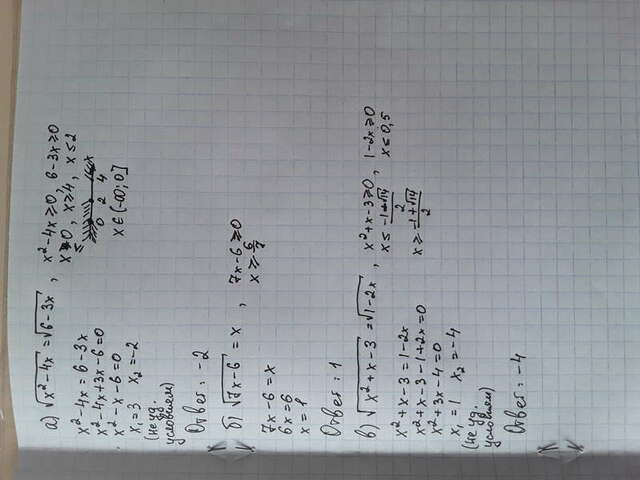 а) √x²-4x = √6-3x , x²-4x≥0, 6-3x≥0
x≤0, x≥4, x≤2
x²-4x = 6-3x
x²-4x+3x-6=0
x²-x-6=0
x₁=3 x₂=-2
(не уд. условием)
0 2 4 x
x∈(-∞; 0]
Ответ: -2
б) √7x-6 = x , 7x-6≥0
x≥6/7
7x-6=x
6x=6
x=1
Ответ: 1
в) √x²+x-3 = √1-2x , x²+x-3≥0, 1-2x≥0
x≤ -1+√14/2 x≤0,5
x≥ -1+√14/2
x²+x-3=1-2x
x²+x-3-1+2x=0
x²+3x-4=0
x₁=1 x₂=-4
(не уд. условием)
Ответ: -4